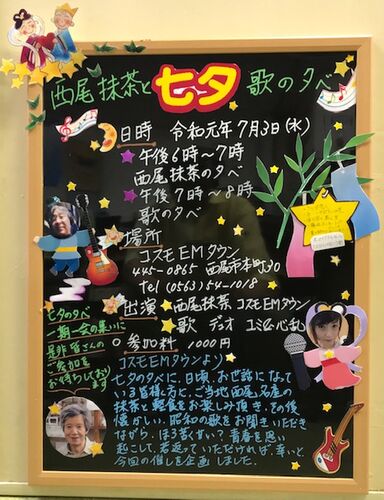 西尾抹茶と七夕歌の夕べ
日時 令和元年7月3日(水)
★午後6時〜7時
西尾抹茶の夕べ
★午後7時〜8時
歌の夕べ
場所
コスモEMタウン
445-0865 西尾市本町30
Tel (0563)54-1018
出演 西尾抹茶 コスモEMタウン
歌 デュオ ユミ&心乱
○参加料 1000円
七夕の夕べ
一期一会の集いに
是非皆さんの
ご参加を
お待ちしております
コスモEMタウンより
七夕の夕べに、日頃、お世話になって
いる皆様方と、ご当地西尾名産の
抹茶と軽食をお楽しみ頂き、その後
懐かしい、昭和の歌をお聞きいただき
ながら、ほろ苦くせい?青春を思い
起こして、若返っていただければ、幸いと
今回の催しを企画しました。